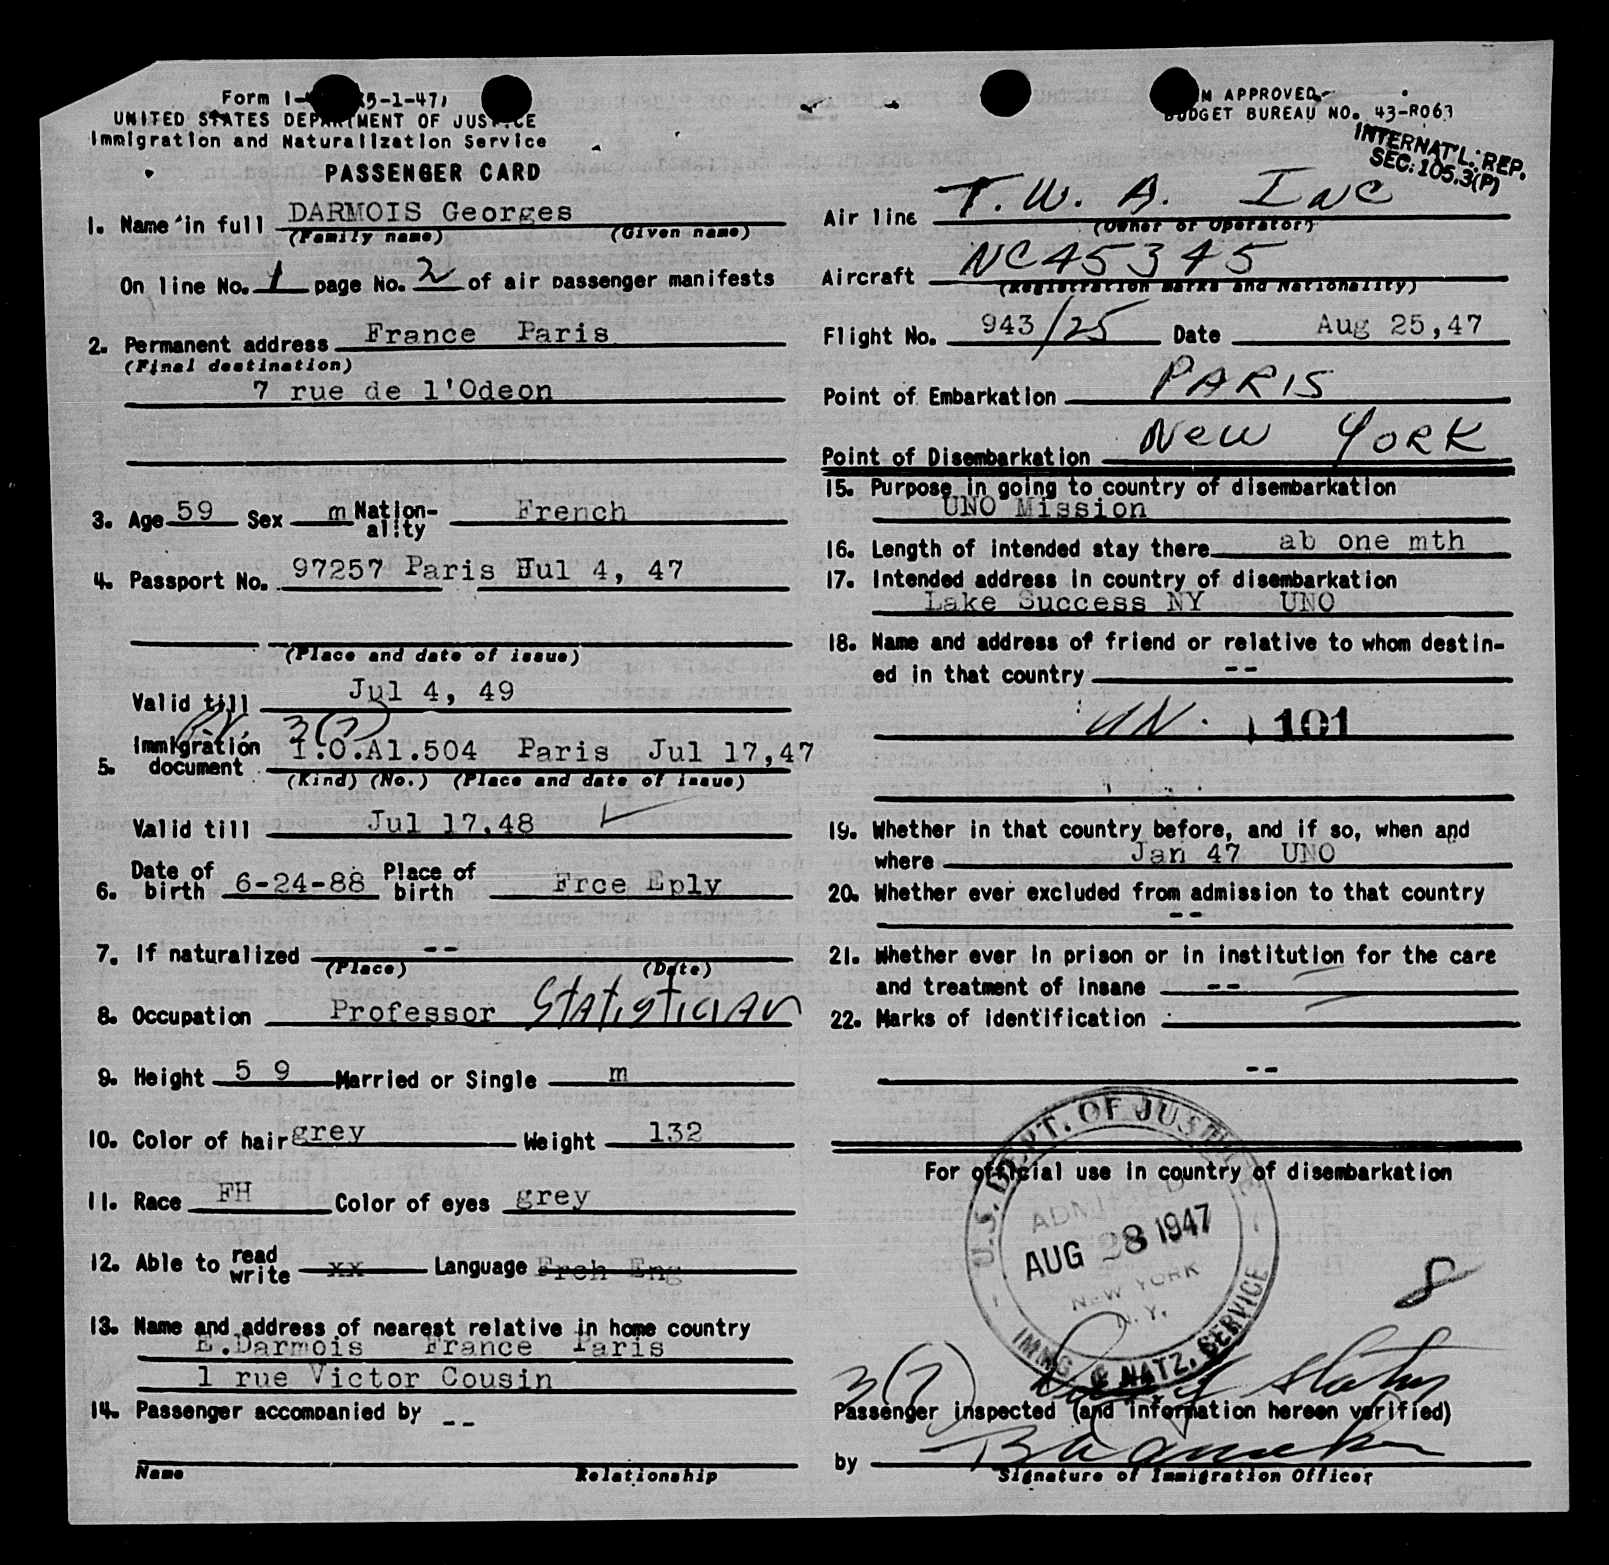 Form I-    5-1-47)
UNITED STATES DEPARTMENT OF JUSTICE
Immigration and Naturalization Service
PASSENGER CARD
1. Name in full DARMOIS Georges
(Family name) (Given name)
On line No. 1 page No. 2 of air passenger manifests
2. Permanent address France Paris
(Final destination)
7 rue de l'Odeon
3. Age 59 Sex m Nation-ality French
4. Passport No. 97257 Paris Jul 4, 47
(Place and date of issue)
Valid till Jul 4, 49
3(7)
5. Immigration document I.O.A1.504 Paris Jul 17,47
(Kind) (No.) (Place and date of issue)
Valid till Jul 17,48
6. Date of birth 6-24-88 Place of birth Frce Eply
7. If naturalized --
(Place) (Date)
8. Occupation Professor Statistician
9. Height 5 9 Married or Single m
10. Color of hair grey Weight 132
11. Race FH Color of eyes grey
12. Able to read write xx Language Frch Eng
13. Name and address of nearest relative in home country
E.Darmois France Paris
1 rue Victor Cousin
14. Passenger accompanied by --
Name Relationship
M APPROVED
BUDGET BUREAU NO. 43-R063
INTERNAT'L. REP.
SEC: 105.3(P)
Air line T. W. A. INC
(Owner or Operator)
Aircraft NC45345
(Registration marks and Nationality)
Flight No. 943/25 Date Aug 25,47
Point of Embarkation PARIS
Point of Disembarkation New YORK
15. Purpose in going to country of disembarkation
UNO Mission
16. Length of intended stay there ab one mth
17. Intended address in country of disembarkation
Lake Success NY UNO
18. Name and address of friend or relative to whom destin-
ed in that country --
UN. 101
19. Whether in that country before, and if so, when and
where Jan 47 UNO
20. Whether ever excluded from admission to that country
--
21. Whether ever in prison or in institution for the care
and treatment of insane --
22. Marks of identification
--
For official use in country of disembarkation
U.S. DEPT. OF JUSTICE
ADMITTED
AUG 28 1947
NEW YORK
N.Y.
IMMG. & NATZ. SERVICE
8
3(7) Status
Passenger inspected (and information hereon verified)
by
Signature of Immigration Officer